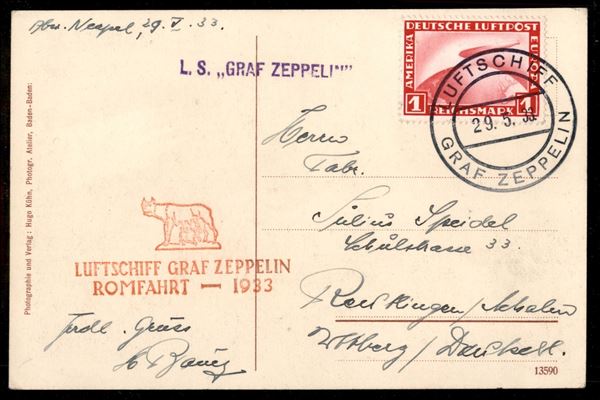 Abs. Neapel, 29. V. 33.
L. S. „GRAF ZEPPELIN"
DEUTSCHE LUFTPOST
AMERIKA
EUROPA
1 REICHSMARK 1
LUFTSCHIFF
29. 5. 33
GRAF ZEPPELIN
Photographie und Verlag: Hugo Kühn, Photogr. Atelier, Baden-Baden:
Herrn
Fabr.
Julius Speidel
Schulstrasse 33
LUFTSCHIFF GRAF ZEPPELIN
ROMFAHRT — 1933
Wttberg / Deutschl.
Gruss
13590